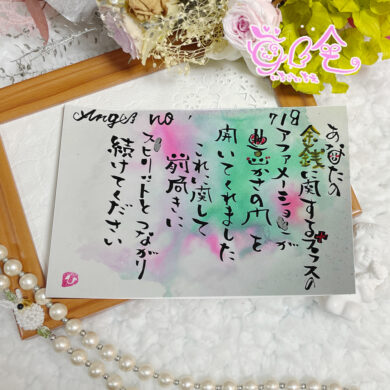 Angel no
718
あなたの
金銭に関するプラスの
アファメーションが
豊かさの門を
開いてくれました
これに関して
前向きに
スピリットとつながり
続けてください